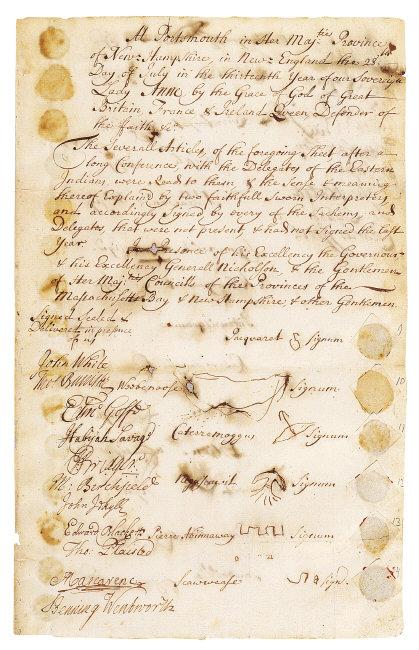 At Portsmouth in Her Maj:ties Province
of New-Hampshire in New-England the 28th
Day of July in the thirteenth Year of our Sovereign
Lady ANNE by the Grace of God of Great
Britain, France & Ireland Queen Defender of
the Faith &c.
The Severall Articles, of the foregoing Sheet after a
long Conference with the Delegates of the Eastern
Indians were Read to them, & the Sense & meaning
thereof Explain'd by two faithfull Sworn Interpreters
and accordingly Signed by every of the Sachems, and
Delegates, that were not present, & had not Signed the last
Year. In Presence of his Excellency the Governour
& his Excellency Generall Nicholson, & the Gentlemen
of Her Maj:ties Councils of the Provinces of the
Massachusetts Bay & New Hampshire & other Gentlemen.
Signed Sealed &
Delivered in presence
of us
Jacquaret Signum
John White
Signum
Habijah Savage Signum
Signum
Edward Pierre Signum
Tho: Plaisted
Mascarene sign.
Benning Wentworth
9
10
11
12
13
14